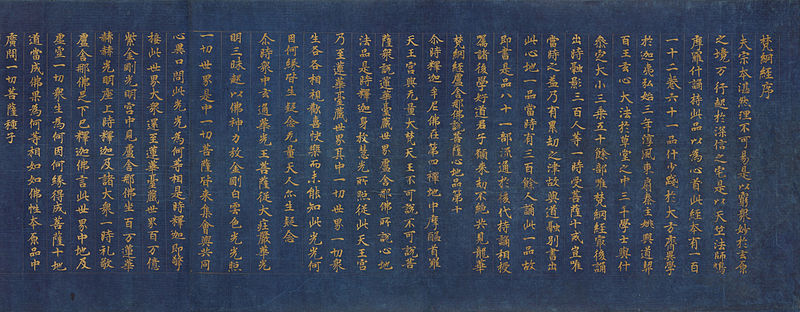 梵網經序
夫宗本湛然理不可易是以窮衆妙於玄原
之境万行起於深信之宅是以天竺法師鳩
摩羅什誦持此品以為心首此經本有一百
一十二卷六十一品什少踐於大方齊異學
於迦夷弘始三年淳風東扇秦主姚興道契
百王玄心大法於草堂之中三千學士與什
叅定大小二乘五十餘部唯梵網經最後誦
出時融影三百人等一時受菩薩十戒豈唯
當時之益乃有累劫之津故與道融別書出
此心地一品當時有三百餘人誦此一品故
即書是品八十一部流通於後代持誦相授
属諸後學好道君子願來劫不絶共見龍華
梵網經盧舍那佛說菩薩心地品第十
尒時釋迦牟尼佛在第四禪地中摩醯首羅
天王宮與无量大梵天王不可說不可說菩
薩衆說蓮華臺藏世界盧舍那佛所說心地
法品是時釋迦身放慧光所照從此天王宮
乃至蓮華臺藏世界其中一切世界一切衆
生各各相視歡喜快樂而未能知此光光何
因何緣皆生疑念无量天人尒生疑念
尒時衆中玄通華光王菩薩從大莊嚴華光
明三昧起以佛神力放金剛白雲色光光照
一切世界是中一切菩薩皆來集會與共同
心異口問此光光為何等相是時釋迦即擎
接此世界大衆還至蓮華臺藏世界百万億
紫金剛光明宮中見盧舍那佛坐百万蓮華
赫赫光明座上時釋迦及諸大衆一時礼敬
盧舍那佛足下已釋迦佛言此世界中地及
虚空一切衆生為何因何緣得成菩薩十地
道當成佛果為何等相如如佛性本原品中
廣問一切菩薩種子